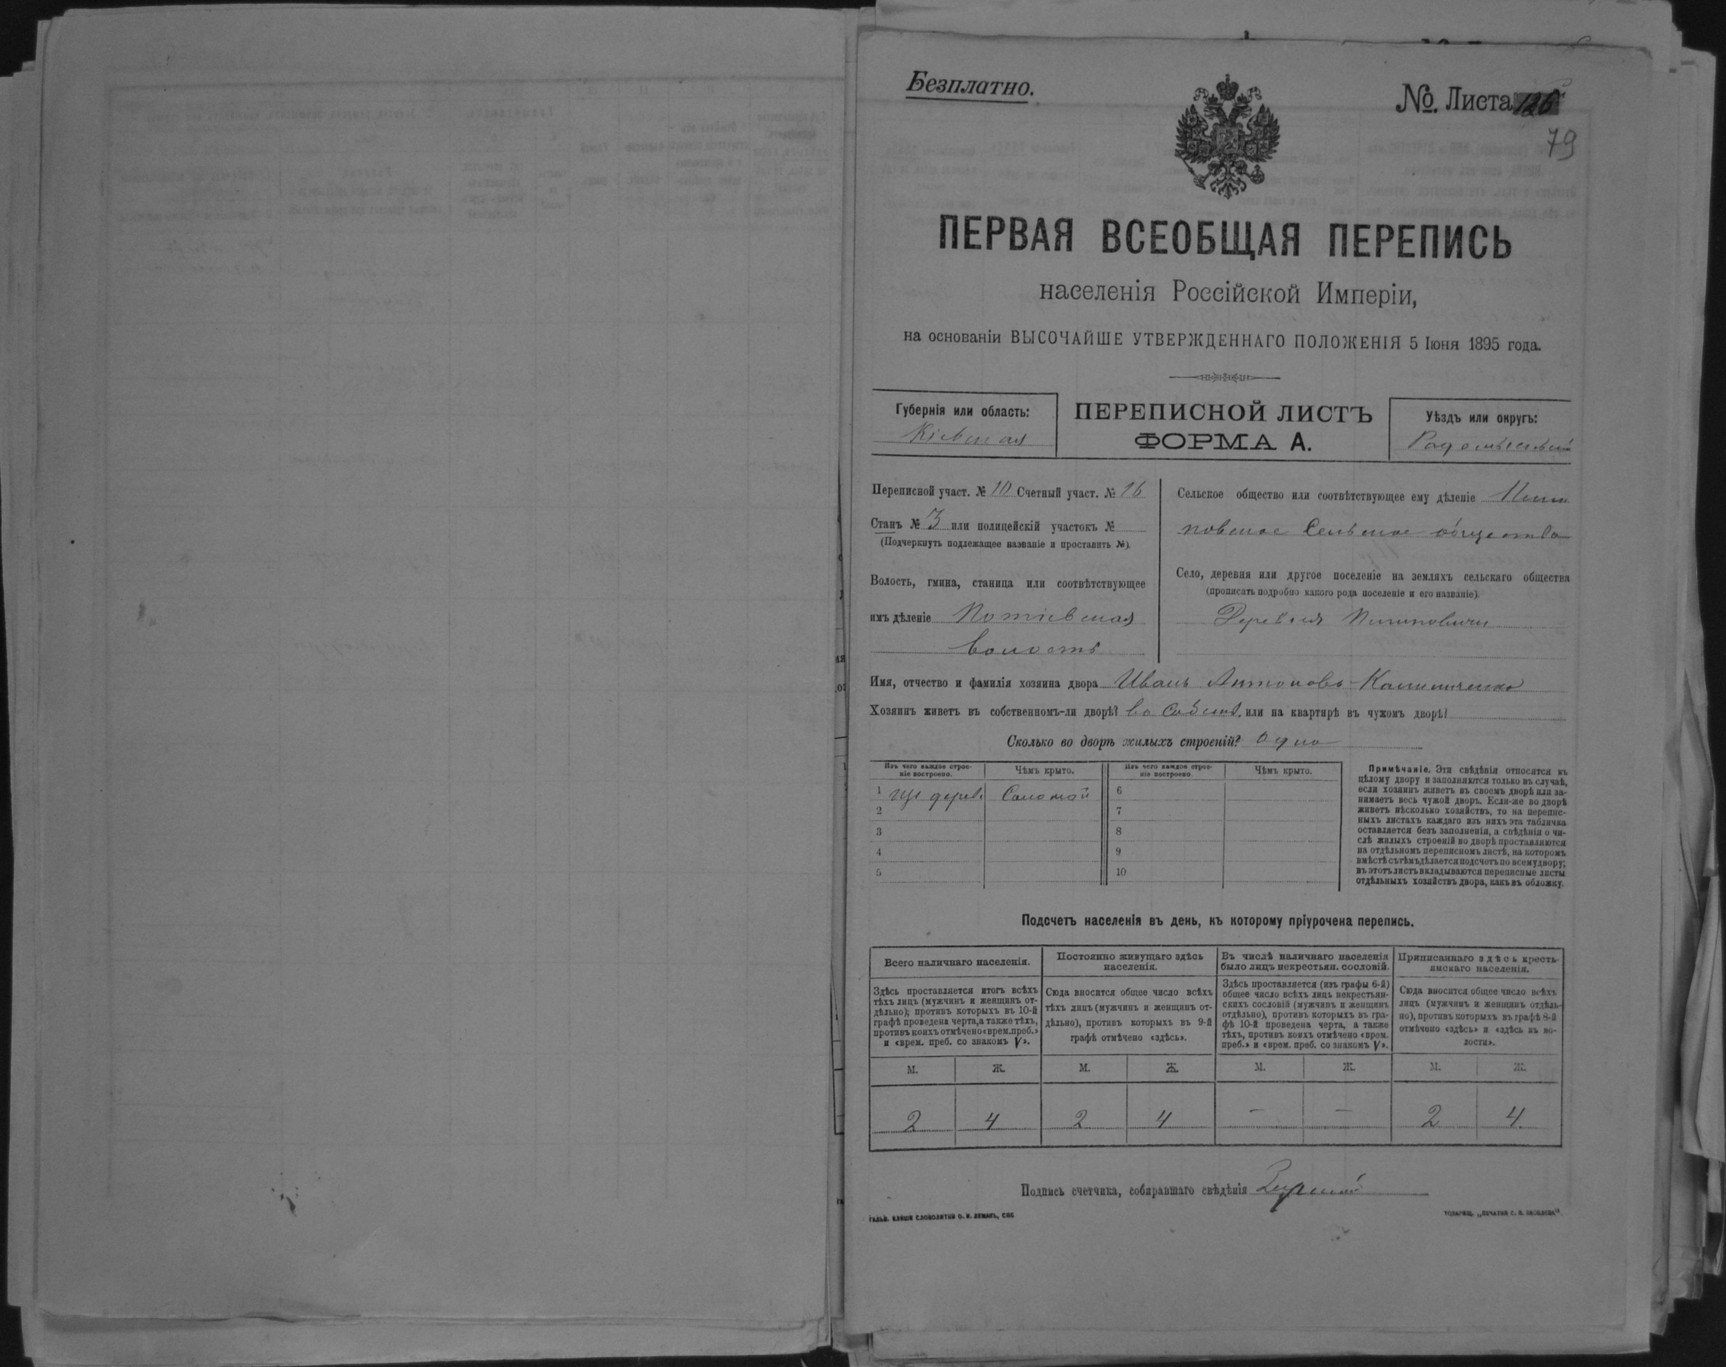 Безплатно.
№. Листа 126
79
ПЕРВАЯ ВСЕОБЩАЯ ПЕРЕПИСЬ
населенія Россійской Имперіи,
на основаніи ВЫСОЧАЙШЕ УТВЕРЖДЕННАГО ПОЛОЖЕНІЯ 5 Іюня 1895 года.
Губернія или область:
Кіевская
ПЕРЕПИСНОЙ ЛИСТЪ
ФОРМА А.
Уѣздъ или округъ:
Радомысльскій
Переписной участ. № 10 Счетный участ. № 16
Станъ № 3 или полицейскій участокъ №
(Подчеркнуть подлежащее названіе и проставить №).
Волость, гмина, станица или соотвѣтствующее
имъ дѣленіе Потіевская
волость
Сельское общество или соотвѣтствующее ему дѣленіе
повское Сельское общество
Село, деревня или другое поселеніе на земляхъ сельскаго общества
(прописать подробно какого рода поселеніе и его названіе).
Деревня
Имя, отчество и фамилія хозяина двора Иванъ Антоновъ
Хозяинъ живетъ въ собственномъ-ли дворѣ? во собств. или на квартирѣ въ чужомъ дворѣ?
Сколько во дворѣ жилыхъ строеній? одно
Изъ чего каждое строе-
ніе построено.
Чѣмъ крыто.
Изъ чего каждое строе-
ніе построено.
Чѣмъ крыто.
1 Изъ дерев. Соломой 6
2 7
3 8
4 9
5 10
Примѣчаніе. Эти свѣдѣнія относятся къ
цѣлому двору и заполняются только въ случаѣ,
если хозяинъ живетъ въ своемъ дворѣ или за-
нимаетъ весь чужой дворъ. Если-же во дворѣ
живетъ нѣсколько хозяйствъ, то на перепис-
ныхъ листахъ каждаго изъ нихъ эта табличка
оставляется безъ заполненія, а свѣдѣнія о чи-
слѣ жилыхъ строеній во дворѣ проставляются
на отдѣльномъ переписномъ листѣ, на которомъ
вмѣстѣ съ тѣмъ дѣлается подсчетъ по всему двору;
въ этотъ листъ вкладываются переписные листы
отдѣльныхъ хозяйствъ двора, какъ въ обложку.
Подсчетъ населенія въ день, къ которому пріурочена перепись.
Всего наличнаго населенія.
Здѣсь проставляется итогъ всѣхъ
тѣхъ лицъ (мужчинъ и женщинъ от-
дѣльно), противъ которыхъ въ 10-й
графѣ проведена черта, а также тѣхъ,
противъ коихъ отмѣчено «врем. преб.»
и «врем. преб. со знакомъ V».
Постоянно живущаго здѣсь
населенія.
Сюда вносится общее число всѣхъ
тѣхъ лицъ (мужчинъ и женщинъ от-
дѣльно), противъ которыхъ въ 9-й
графѣ отмѣчено «здѣсь».
Въ числѣ наличнаго населенія
было лицъ некрестьян. сословій.
Здѣсь проставляется (изъ графы 6-й)
общее число всѣхъ лицъ некрестьян-
скихъ сословій (мужчинъ и женщинъ
отдѣльно), противъ которыхъ въ гра-
фѣ 10-й проведена черта, а также
тѣхъ, противъ коихъ отмѣчено «врем.
преб.» и «врем. преб. со знакомъ V».
Приписаннаго здѣсь кресть-
янскаго населенія.
Сюда вносится общее число всѣхъ
лицъ (мужчинъ и женщинъ отдѣль-
но), противъ которыхъ въ графѣ 8-й
отмѣчено «здѣсь» и «здѣсь въ во-
лости».
М. Ж. М. Ж. М. Ж. М. Ж.
2 4 2 4 — — 2 4.
Подпись счетчика, собиравшаго свѣдѣнія
ГАЛЬВ. КЛИШЕ СЛОВОЛИТНИ О. И. ЛЕМАНЪ, СПБ.
ТОВАРИЩ. „ПЕЧАТНЯ С. П. ЯКОВЛЕВА“